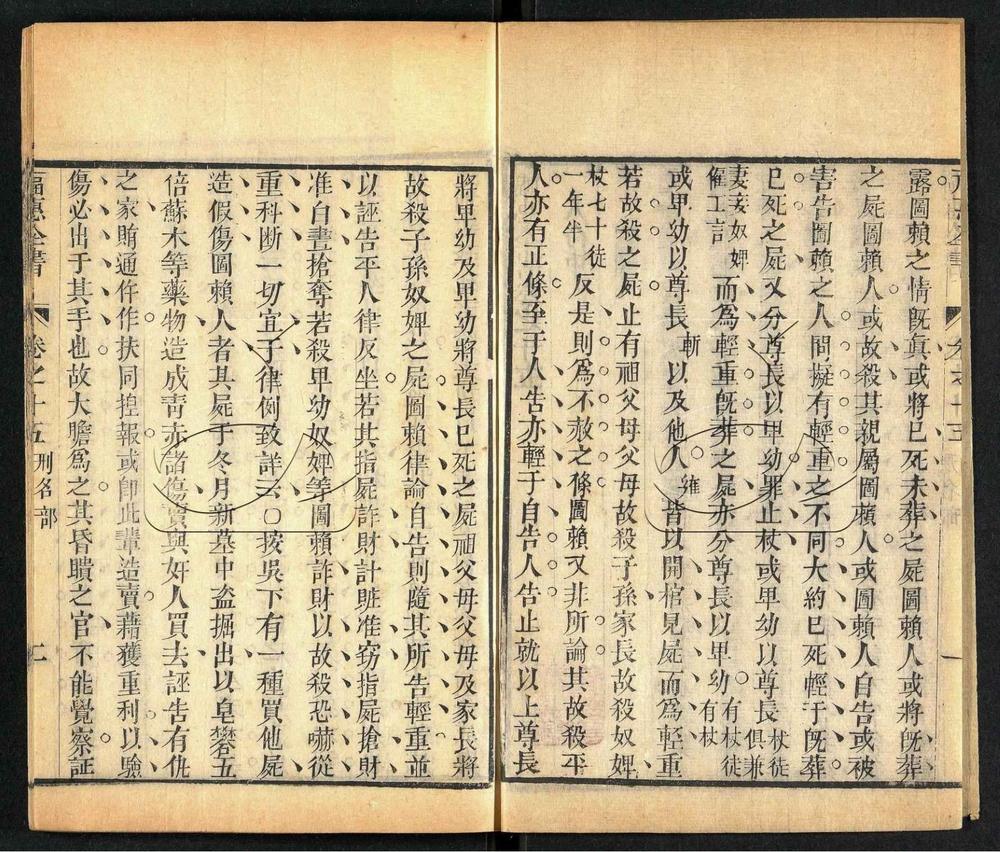 露圖賴之情既真或將已死未葬之屍圖賴人或將既葬
之屍圖賴人或故殺其親屬圖賴人或圖賴人自告或被
害告圖賴之人問擬有輕重之不同大約已死輕于既葬
已死之屍又分尊長以卑幼罪止杖或卑幼以尊長杖徒俱兼
妻妾奴婢雇工言而為輕重既葬之屍亦分尊長以卑幼有杖有杖徒
或卑幼以尊長斬以及他人雍皆以開棺見屍而為輕重
若故殺之屍止有祖父母父母故殺子孫家長故殺奴婢
杖七十徒一年半反是則為不赦之條圖賴又非所論其故殺平
人亦有正條至于人告亦輕于自告人告止就以上尊長
將卑幼及卑幼將尊長已死之屍祖父母父母及家長將
故殺子孫奴婢之屍圖賴律論自告則隨其所告輕重並
以誣告平人律反坐若其指屍詐財計贓准竊指屍搶財
准白晝搶奪若殺卑幼奴婢等圖賴詐財以故殺恐嚇從
重科断一切宜于律例致詳云○按吳下有一種買他屍
造假傷圖賴人者其屍于冬月新墓中盗掘出以皂礬五
倍蘇木等藥物造成青赤諸傷賣與奸人買去誣告有仇
之家賄通仵作扶同揑報或卽此輩造賣藉獲重利以驗
傷必出于其手也故大膽為之其昏瞶之官不能覺察証
福惠全書
卷之十五
刑名部
二